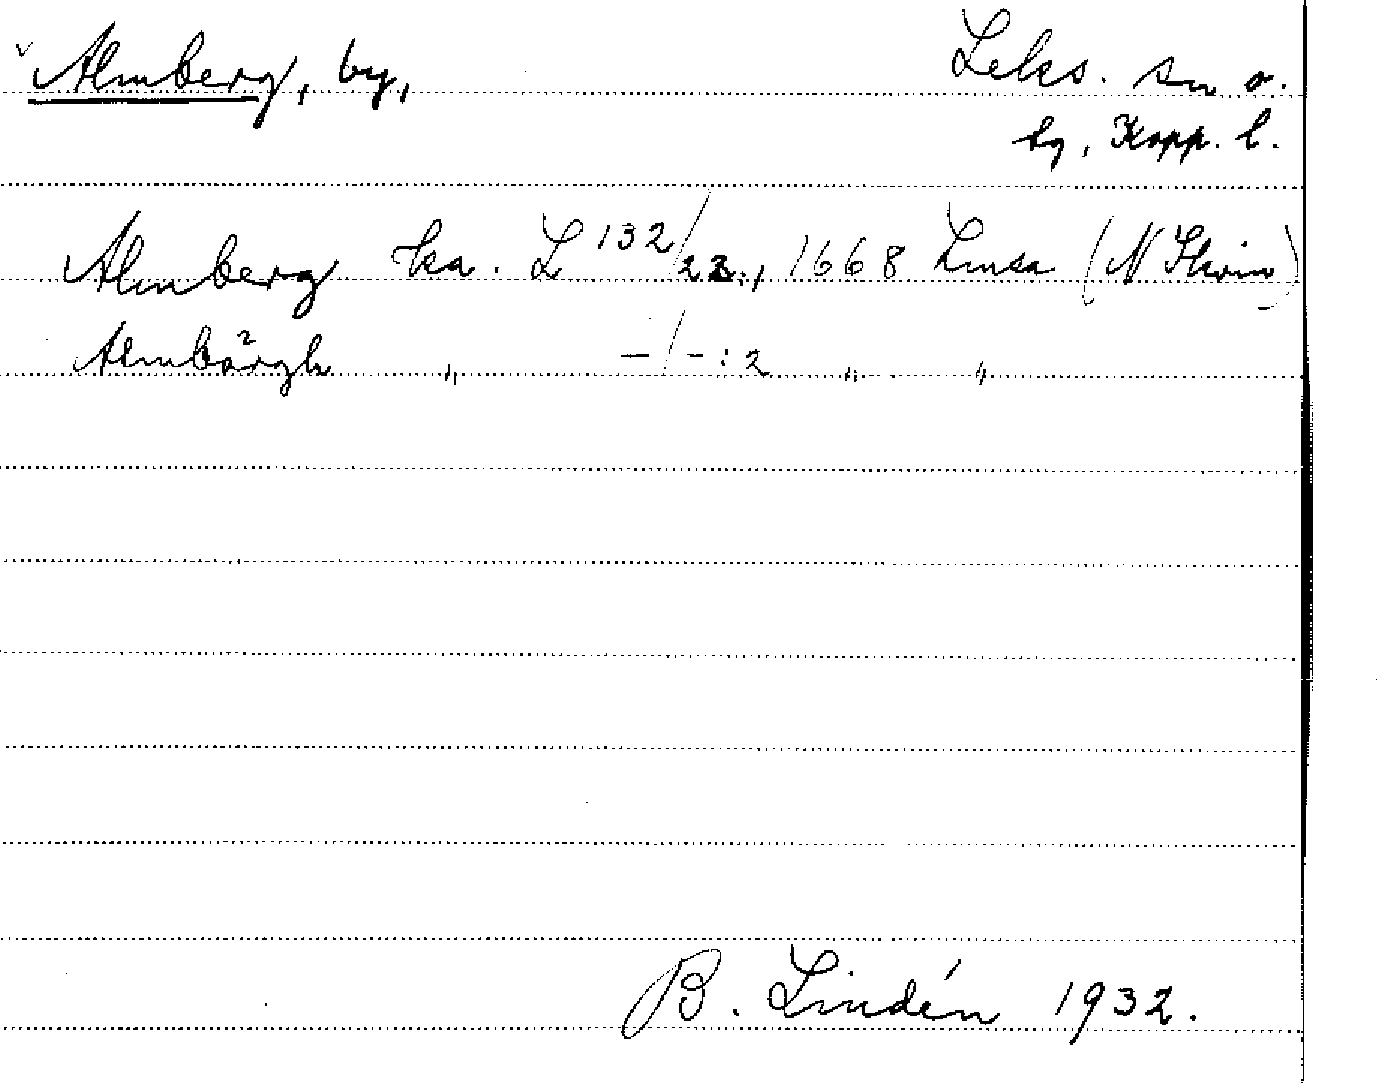 Almberg, by, Leks. sn o.
hg, Kopp. l.
Almberg ka. L 132/22:1 1668 Lmsa (N Skvin)
Almbärgh " -/-:2 " "
B. Lindén 1932.